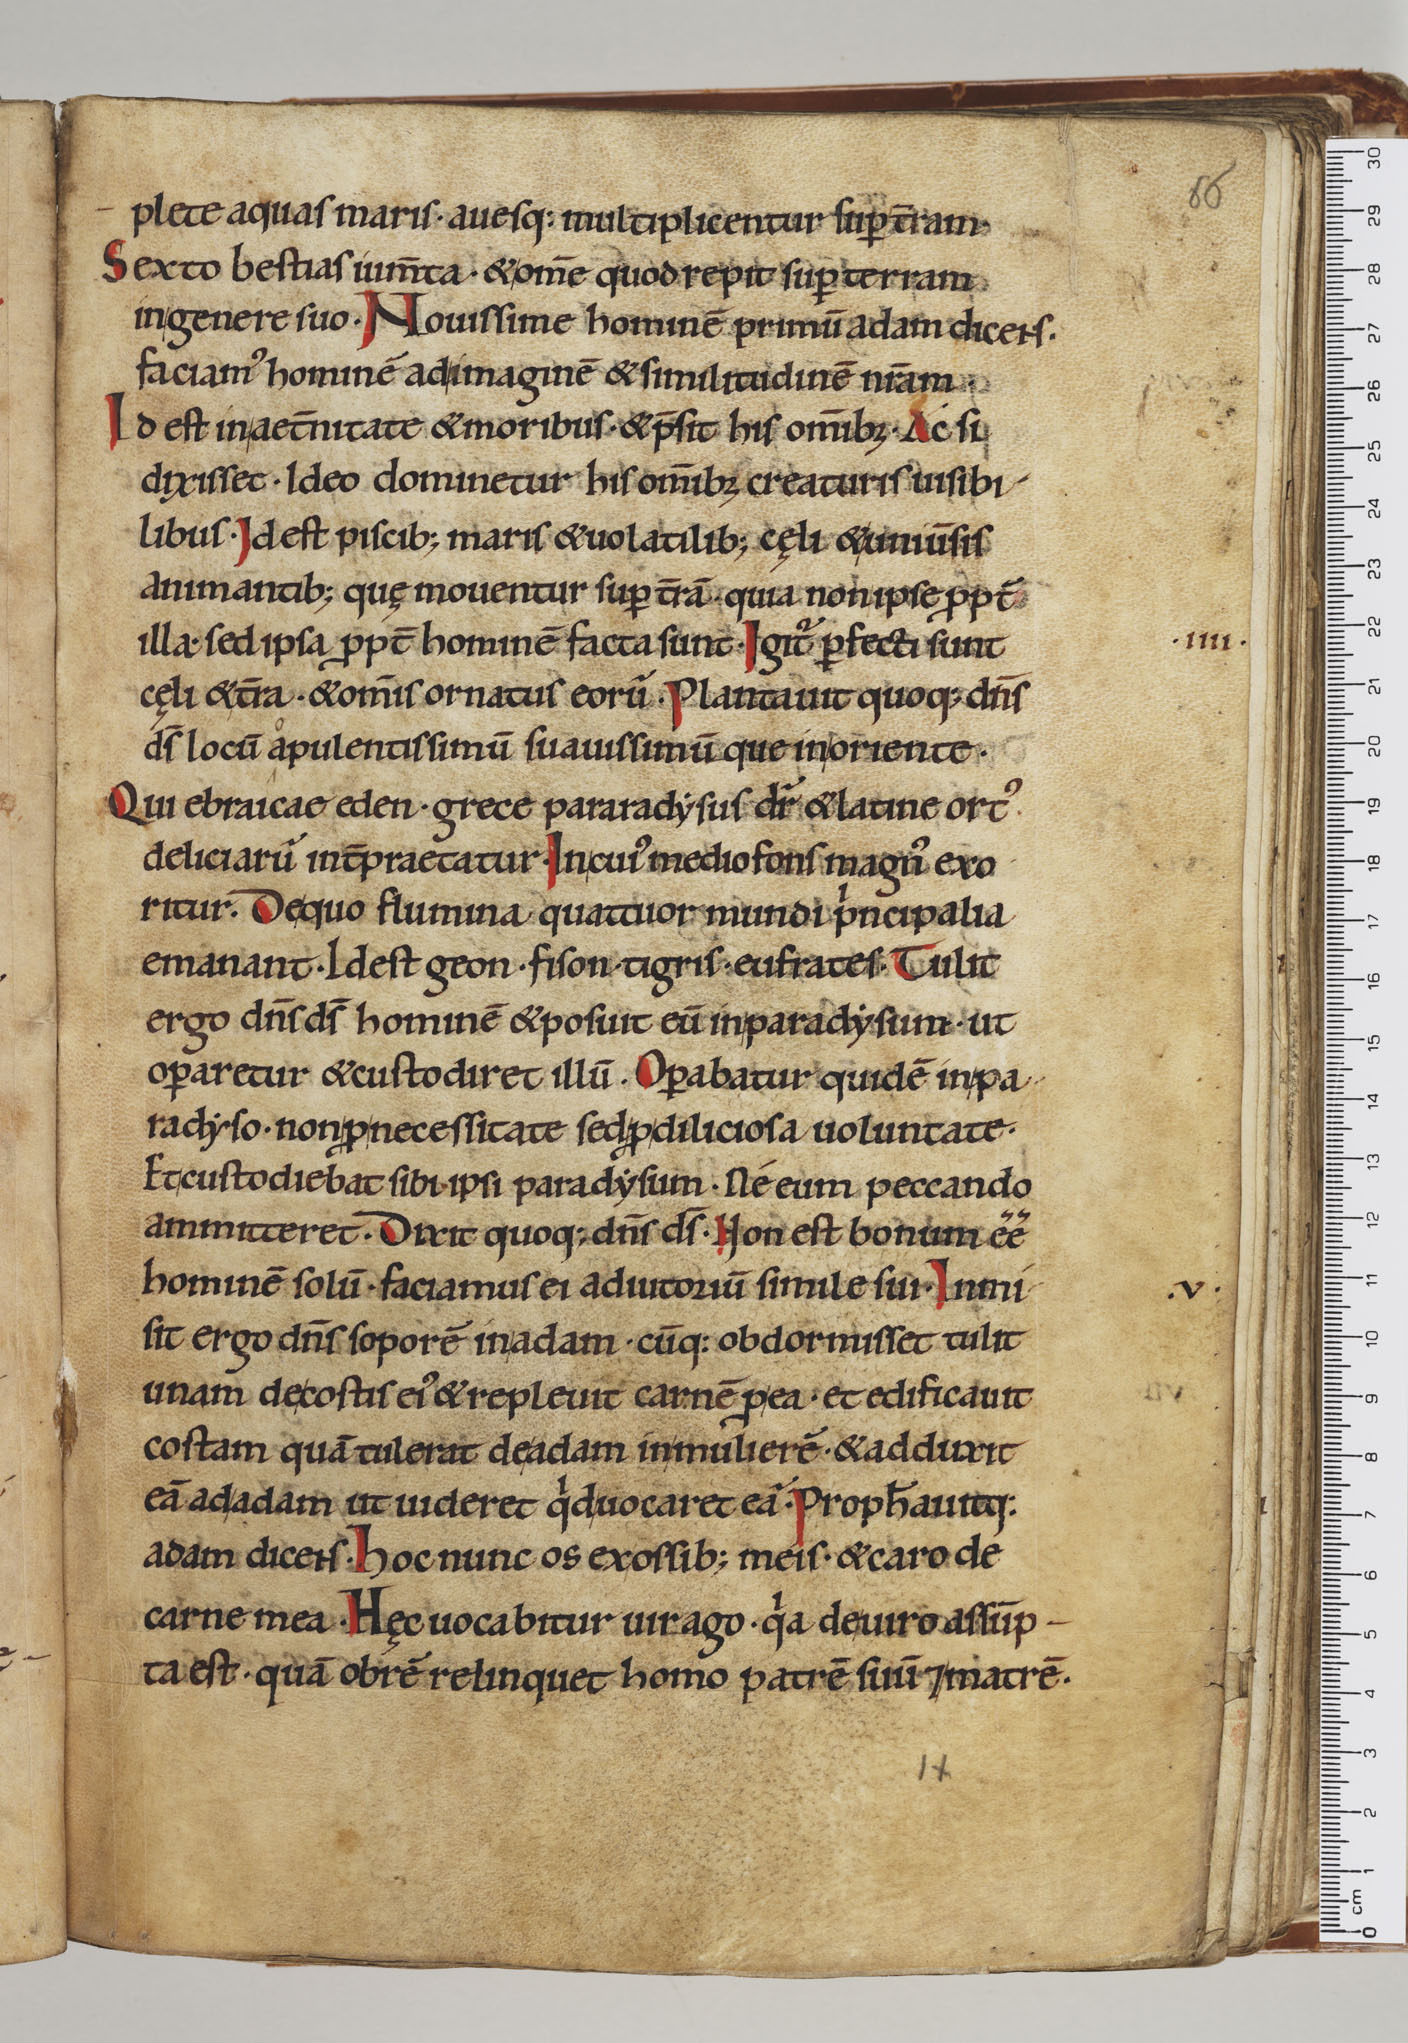 66
plete aquas maris · auesq: multiplicentur sup̱ t̄ram·
Sexto bestias ium̄ta · & om̄e quod repit sup̱ terram
in genere suo · Nouissime hominē primū adam dicens.
faciamꝰ hominē ad imaginē & similitudinē nr̄am ·
Id est in aet̄nitate & moribus · & p̄sit his om̄ibꝫ · Ac si
dixisset · Ideo dominetur his om̄ibꝫ creaturis uisibi-
libus · Id est piscib; maris & uolatilib; cęli & uniūsis
animantib; quę mouentur sup̱ t̄rā · quia non ipse ꝓpt̄
illa · sed ipsa ꝓpt̄ hominē facta sunt · Igit᷑ ꝑfecti sunt
·IIII·
cęli & t̄ra · & om̄is ornatus eorū · Plantauit quoq; dn̄s
ds̄ locū åpulentissimū suauissimū que in oriente ·
Qui ebraicae eden · grece pararadẏsus dr̄ & latine ortꝰ
deliciarū int̄praetatur · In cuiꝰ medio fons magnꝰ exo
ritur. De quo flumina quattuor mundi pͥncipalia
emanant · Id est geon · fison · tigris · eufrates · Tulit
ergo dn̄s ds̄ hominē & posuit eū in paradẏsum · ut
oꝑaretur & custodiret illū · Oꝑabatur quidē in pa-
radẏso · non ꝓ necessitate sed ꝓ diliciosa uoluntate ·
Et custodiebat sibi ipsi paradẏsum · Né eum peccando
ammitteret · Dixit quoq; dn̄s ds̄ · Non est bonum ēē
hominē solū · faciamus ei adiutoriū simile sui · Inmi-
·V·
sit ergo dn̄s soporē in adam · cūq: obdormisset tulit
unam de costis eiꝰ & repleuit carnē ꝓ ea · et edificauit
costam quā tulerat de adam in mulierē · & adduxit
eā ad adam ut uideret qͥd uocaret eā · Proph̄auitq:
adam dicens · Hoc nunc os ex ossib; meis · & caro de
carne mea · Hęc uocabitur uirago · qͥa de uiro assūp-
ta est · quā obrē relinquet homo patrē suū ⁊ matrē ·